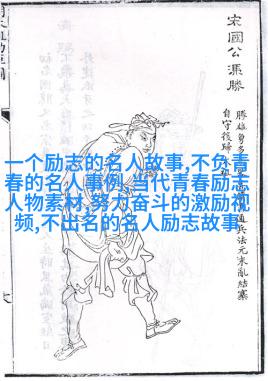 一个励志的名人故事,不负青
春的名人事例,当代青春励志
人物素材,努力奋斗的激励视
频,不出名的名人励志故事
宋國公馮勝
勝雄勇多通兵法元末亂結寨
自守後歸